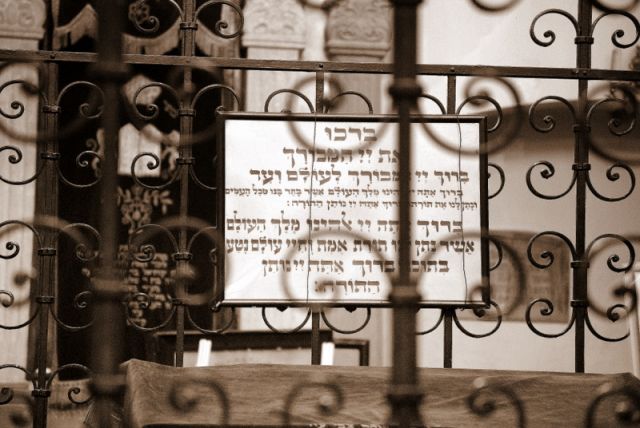 ברכו
את יי המבורך
ברוך יי המבורך לעולם ועד
ברוך אתה יי אלהינו מלך העולם אשר בחר בנו מכל העמים
ונתן לנו את תורתו ברוך אתה יי נותן התורה:
ברוך אתה יי אלהינו מלך העולם
אשר נתן לנו תורת אמת וחיי עולם נטע
בתוכנו ברוך אתה יי נותן
התורה: